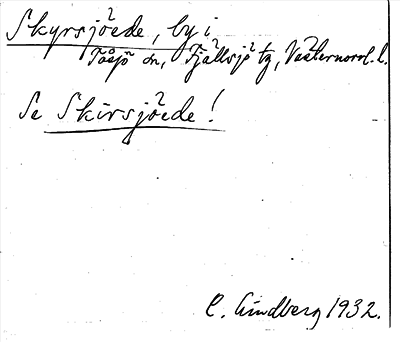 Skyrsjöede, by i
Tåsjö sn, Fjällsjö tg, Västernorrl. l.
Se Skirsjöede!
C. Lindberg 1932.